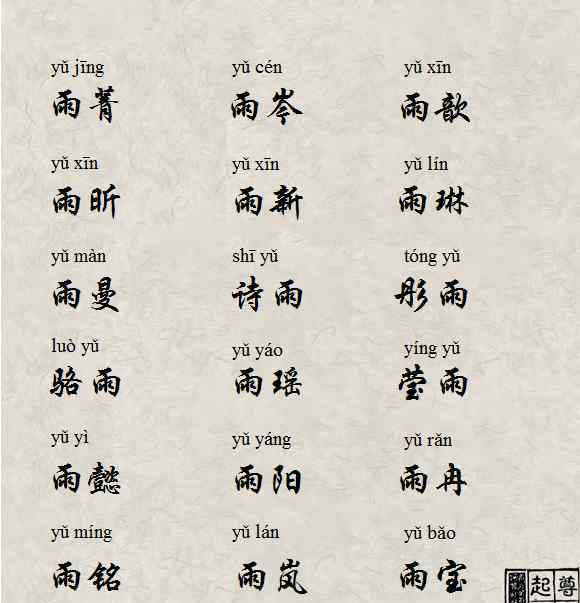 yǔ jīng yǔ cén yǔ xīn
雨菁 雨岑 雨歆
yǔ xīn yǔ xīn yǔ lín
雨昕 雨新 雨琳
yǔ màn shī yǔ tóng yǔ
雨曼 诗雨 彤雨
luò yǔ yǔ yáo yíng yǔ
骆雨 雨瑶 莹雨
yǔ yì yǔ yáng yǔ rǎn
雨懿 雨阳 雨冉
yǔ míng yǔ lán yǔ bǎo
雨铭 雨岚 雨宝
起尊